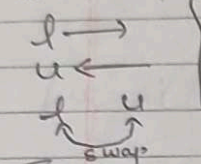 l →
u ←
l u
swap